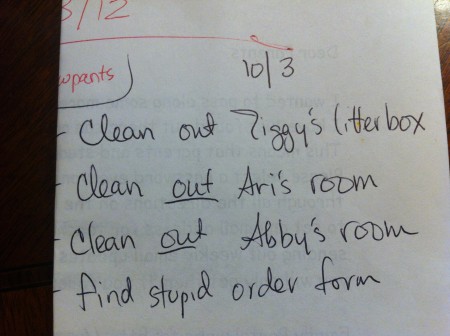 3/12
10/3
- Clean out Ziggy's litterbox
- Clean out Ari's room
- Clean out Abby's room
- find stupid order form